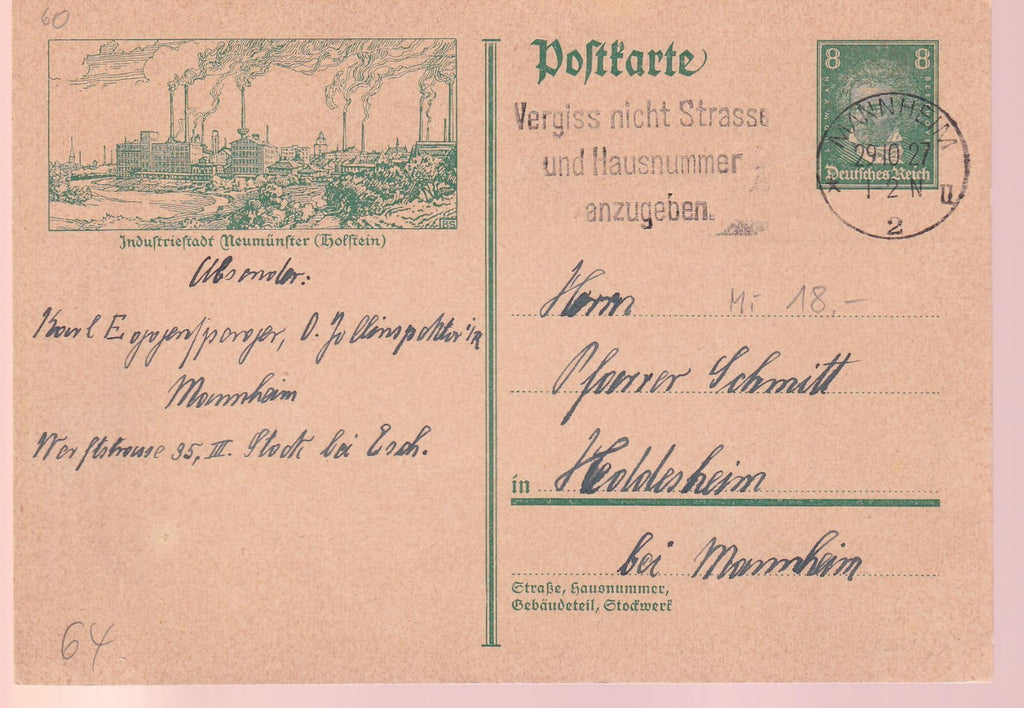 60
Industriestadt Neumünster (Holstein)
Absender:
Karl Eggensparger, O. Zollinspektor i/R
Mannheim
Werftstrasse 35, III. Stock bei Esch.
64
Postkarte
Vergiss nicht Strasse
und Hausnummer
anzugeben.
8 8
Deutsches Reich
MANNHEIM
29.10.27
1-2 N
* II
2
Herrn
Mi 18,-
Pfarrer Schmitt
in Heddesheim
bei Mannheim
Straße, Hausnummer,
Gebäudeteil, Stockwerk